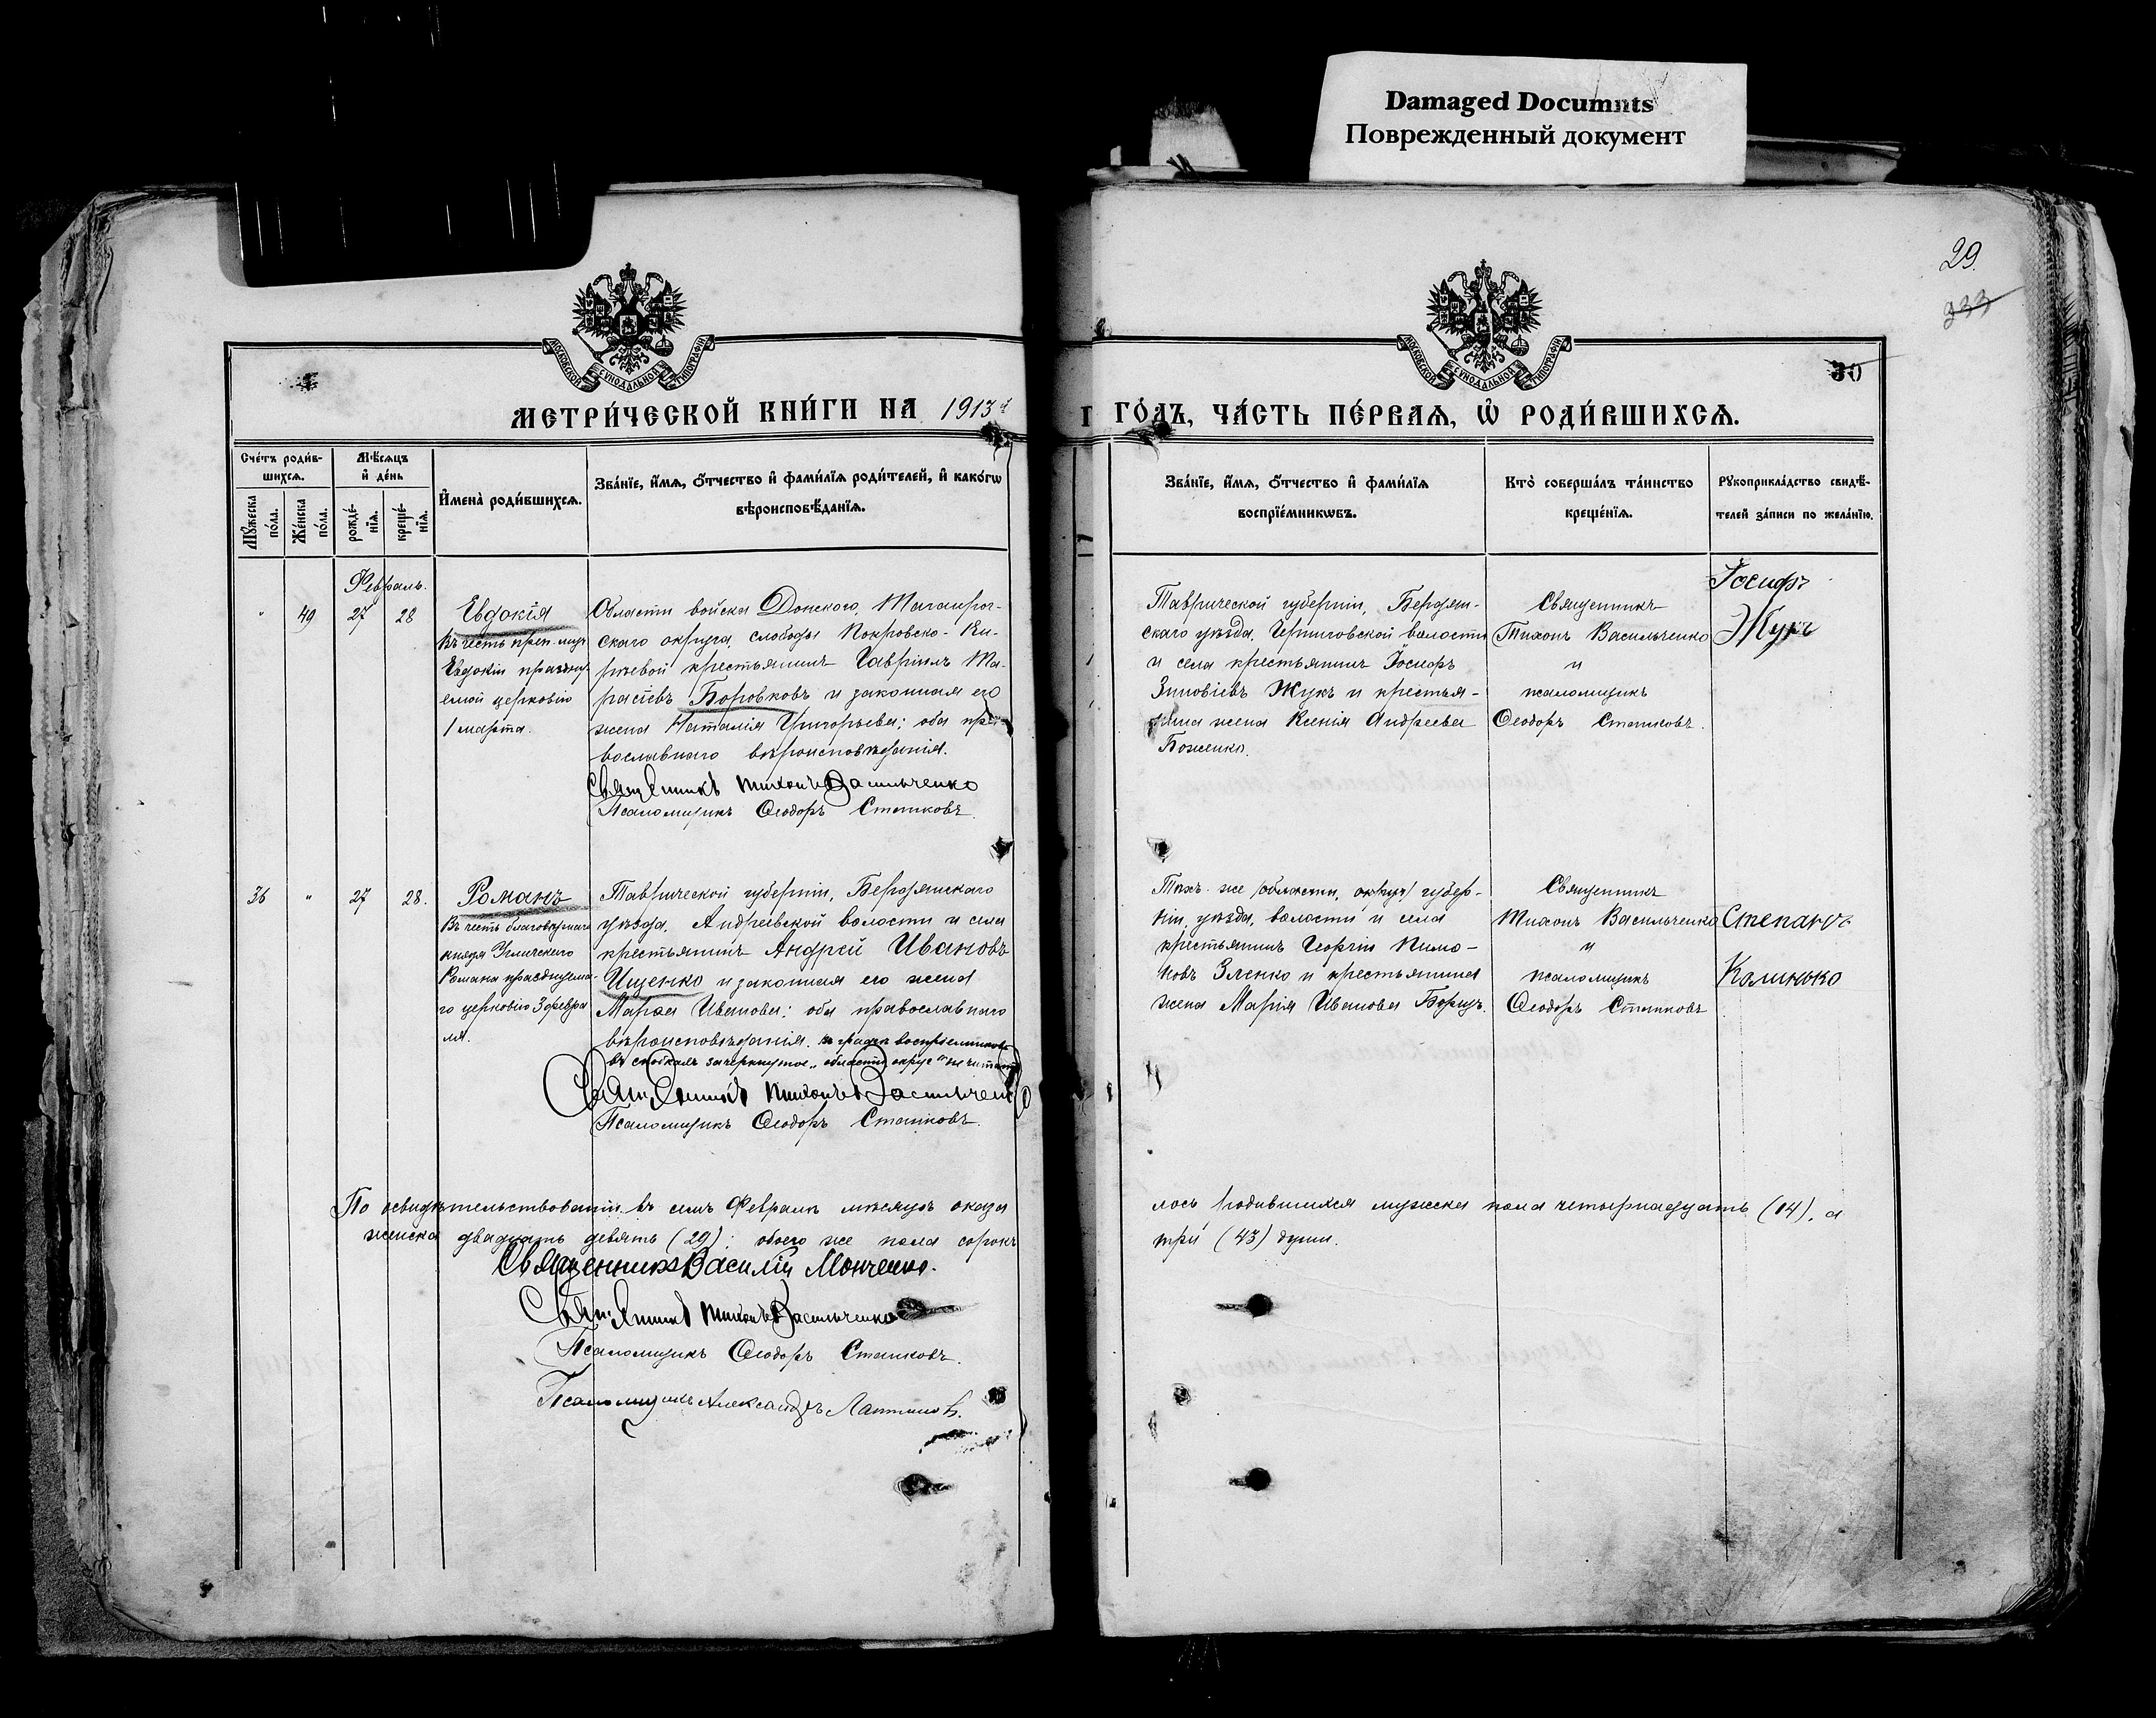 Damaged Documnts
Поврежденный документ
29.
333
30
МОСКОВСКОЙ СѴНОДАЛЬНОЙ ТИПОГРАФІИ
МОСКОВСКОЙ СѴНОДАЛЬНОЙ ТИПОГРАФІИ
МЕТРИ́ЧЕСКОЙ КНИ́ГИ НА 1913й
ГО́ДЪ, ЧА́СТЬ ПЕ́РВАЯ, Ѡ҆ РОДИ́ВШИХСЯ.
Сче́тъ роди́в-
шихся.
Мꙋжеска по́ла.
Же́нска по́ла.
Мѣ́сяцъ
и҆ де́нь
рожде́-
нїя.
креще́-
нїя.
И҆мена̀ роди́вшихся.
Зва́нїе, и҆́мя, ѻ҆́тчество и҆ фами́лїя роди́телей, и҆ како́гѡ
вѣроисповѣ́данїя.
Зва́нїе, и҆́мя, ѻ҆́тчество и҆ фами́лїя
воспрїе́мникѡвъ.
Кто̀ соверша́лъ та́инство
креще́нїя.
Рꙋкоприкла́дство свидѣ́-
телей за́писи по жела́нїю.
Февраль.
" 49 27 28
Евдокія
Въ честь преп. муч.
Евдокіи празднụ-
емой церковію
1 марта.
Области войска Донского, Таганрог-
скаго округа, слободы Покровско-Ки-
рѣевой крестьянинъ Гавріилъ Та-
расіевъ Боровковъ и законная его
жена Наталія Григорьева; оба пра-
вославнаго вѣроисповѣданія.
Священникъ Тихонъ Васильченко
Псаломщикъ Ѳеодоръ Станковъ.
Таврической губерніи, Бердян-
скаго уѣзда, Черниговской волости
и села крестьянинъ Іосифъ
Зиновіевъ Жукъ и крестья-
нина жена Ксенія Андреева
Боженко.
Священникъ
Тихонъ Васильченко
и
псаломщикъ
Ѳеодоръ Станковъ.
Іосифъ
Жукъ
36 " 27 28.
Романъ
Въ честь благовѣрнаго
князя Угличскаго
Романа празднуема-
го церковію 3 февра
ля.
Таврической губерніи, Бердянскаго
уѣзда, Андреевской волости и села
крестьянинъ Андрей Ивановъ
Ищенко и законная его жена
Марѳа Иванова; оба православнаго
вѣроисповѣданія. Въ графѣ воспріемниковъ
въ скобкахъ зачеркнутое „области, округ" не читать
Священникъ Тихонъ Васильченко
Псаломщикъ Ѳеодоръ Станковъ.
Тѣхъ же (области, округа) губер-
ніи, уѣзда, волости и села
крестьянинъ Георгій Пимо-
новъ Зленко и крестьянина
жена Марія Иванова Борщъ.
Священникъ
Тихонъ Васильченко
и
псаломщикъ
Ѳеодоръ Станковъ
Степанъ
Калинько
По освидѣтельствованіи въ семъ Февралѣ мѣсяцѣ оказа
лось родившихся мужеска пола четырнадцать (14), а
женска двадцать девять (29); обоего же пола сорокъ
три (43) души.
Священникъ Василій Монченко.
Священникъ Тихонъ Васильченко
Псаломщикъ Ѳеодоръ Станковъ.
Псаломщикъ Александръ